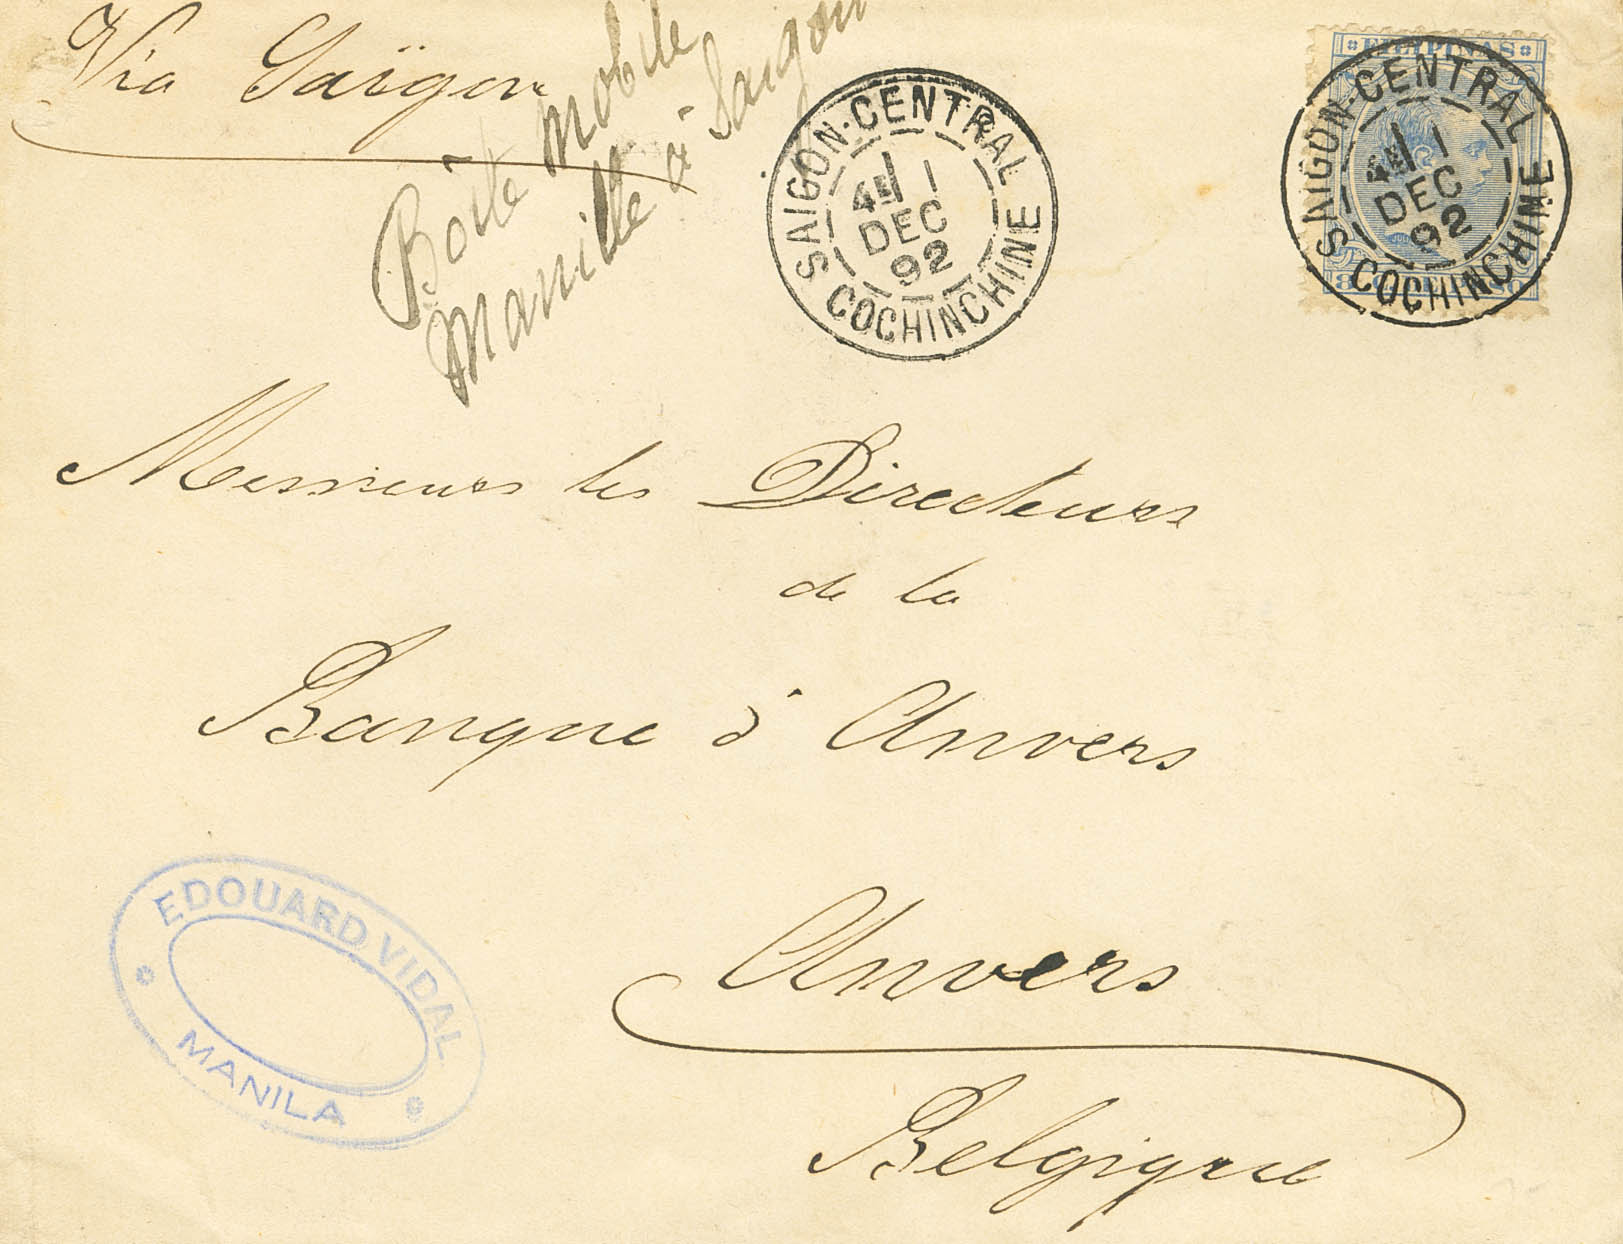 Via Saïgon
Boîte mobile
Manille à Saigon
SAIGON-CENTRAL
1
DEC
92
COCHINCHINE
FILIPINAS
SAIGON-CENTRAL
1
DEC
92
COCHINCHINE
Messieurs les Directeurs
de la
Banque d'Anvers
Anvers
Belgique
EDOUARD VIDAL
MANILA